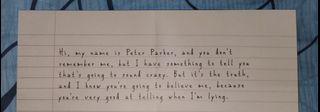 Hi, my name is Peter Parker, and you don't
remember me, but I have something to tell you
that's going to sound crazy. But it's the truth,
and I know you're going to believe me, because
you're very good at telling when I'm lying.